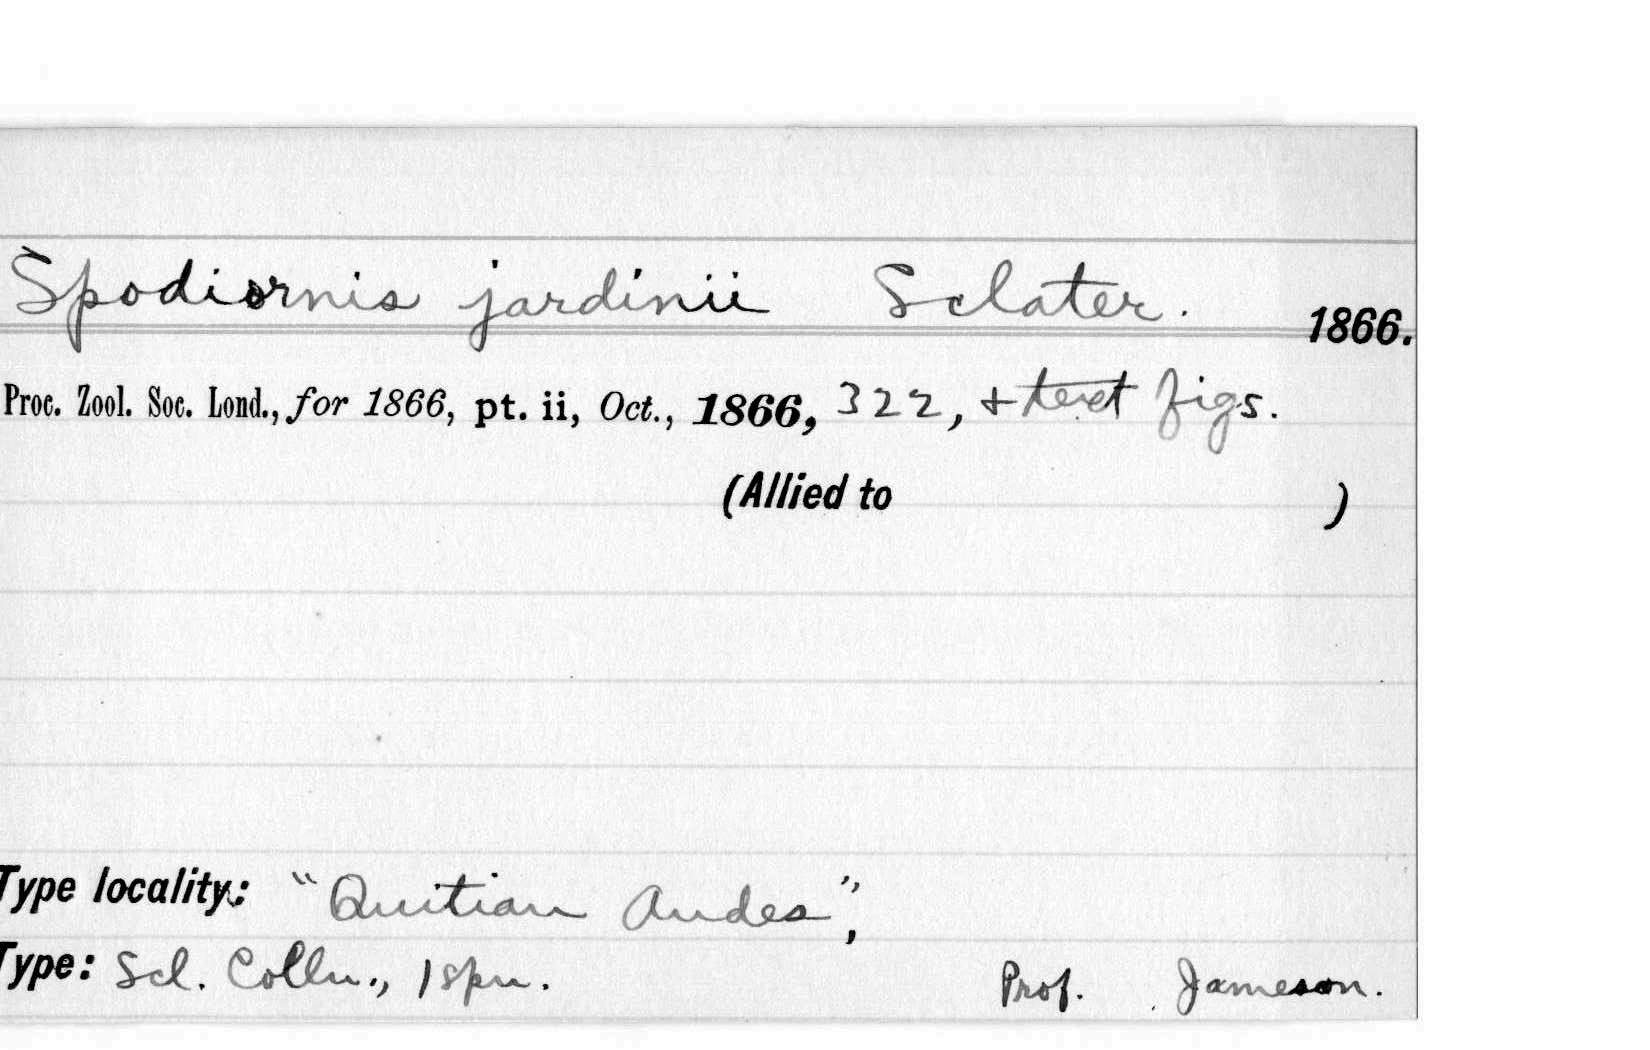 Spodiornis jardinii Sclater. 1866.
Proc. Zool. Soc. Lond., for 1866, pt. ii, Oct., 1866, 322, + text figs.
(Allied to )
Type locality: "Quitian Andes",
Type: Scl. Colln., 1 spn. Prof. Jameson.